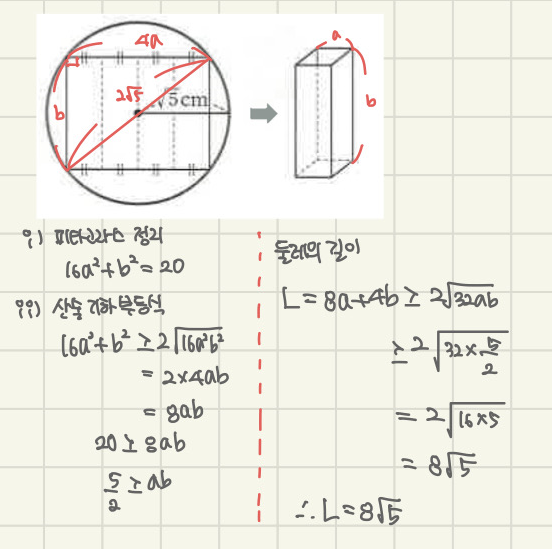 4a
b
2√5
√5cm
a
b
i) 피타고라스 정리
16a²+b²=20
ii) 산술기하 부등식
16a²+b² ≥ 2√16a²b²
= 2×4ab
= 8ab
20 ≥ 8ab
5/2 ≥ ab
둘레의 길이
L = 8a+4b ≥ 2√32ab
≥ 2√32×5/2
= 2√16×5
= 8√5
∴ L = 8√5